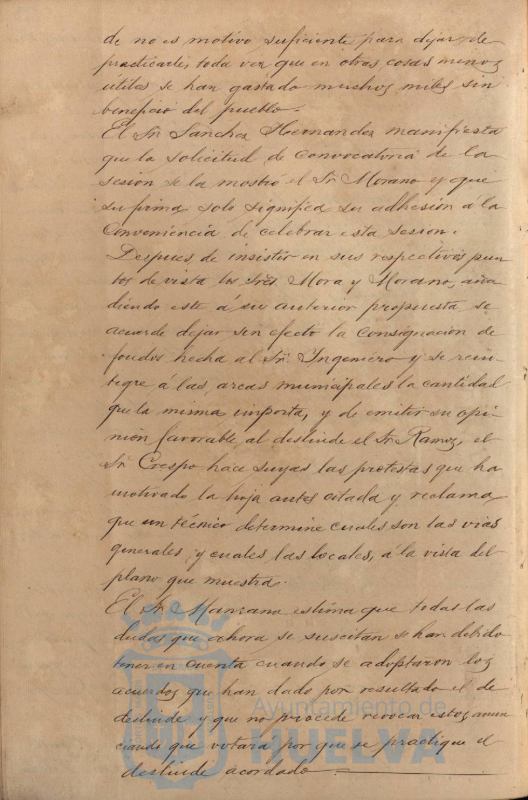 de no es motivo suficiente para dejar de
practicarle, toda vez que en otras cosas menos
útiles se han gastado muchos miles sin
beneficio del pueblo.
El Sr. Sanchez Hernandez manifiesta
que la solicitud de convocatoria de la
sesión se la mostró el Sr. Morano y que
su firma solo significa su adhesión á la
conveniencia de celebrar esta sesion.
Despues de insistir en sus respectivos pun
tos de vista los Sres. Mora y Morano, aña
diendo este á su anterior propuesta se
acuerde dejar sin efecto la consignacion de
fondos hecha al Sr. Ingeniero y se rein-
tegre á las arcas municipales la cantidad
que la misma importa, y de emitir su opi-
nión favorable al deslinde el Sr. Ramos, el
Sr. Crespo hace suyas las protestas que ha
motivado la hoja antes citada y reclama
que un técnico determine cuales son las vias
generales y cuales las locales, á la vista del
plano que muestra.
El Sr. Manzano estima que todas las
dudas que ahora se suscitan se han debido
tener en cuenta cuando se adoptaron los
acuerdos que han dado por resultado el de
deslinde y que no procede revocar estos anun
ciando que votará por que se practique el
deslinde acordado.
Ayuntamiento de
HUELVA